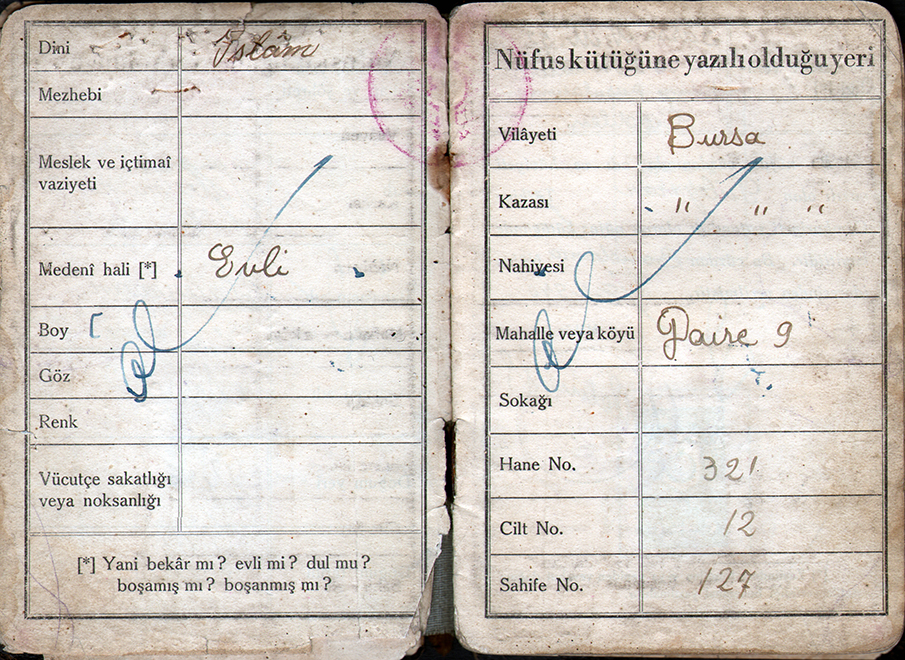 Dini İslâm
Mezhebi
Meslek ve içtimaî
vaziyeti
Medenî hali [*] Evli
Boy
Göz
Renk
Vücutçe sakatlığı
veya noksanlığı
[*] Yani bekâr mı? evli mi? dul mu?
boşamış mı? boşanmış mı?
Nüfus kütüğüne yazılı olduğu yeri
Vilâyeti Bursa
Kazası " " "
Nahiyesi
Mahalle veya köyü Daire 9
Sokağı
Hane No. 321
Cilt No. 12
Sahife No. 127